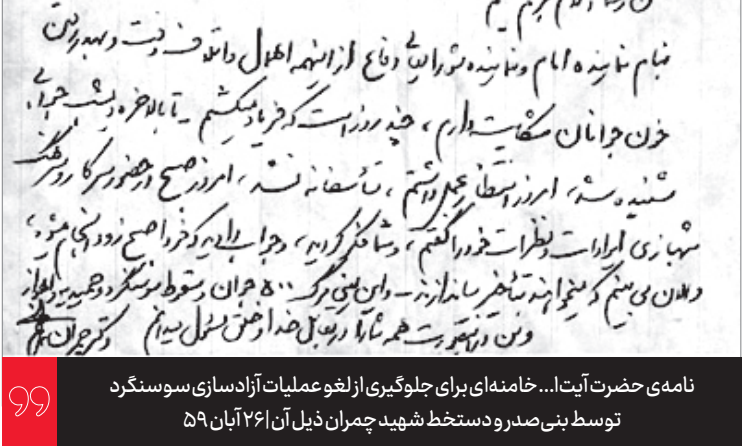 بنام نماینده امام و نماینده شورایعالی دفاع از اینهمه اهمال و اتلاف وقت و بهدر رفتن
خون جوانان شکایت دارم، چند روز است که فریاد میکشم تا بالاخره دیشب جوابی
شنیده شد، امروز انتظار عمل داشتم، متأسفانه نشد، امروز صبح در حضور سرکار سرهنگ
شهبازی ایرادات و نظرات خود را گفتم، و شما فکر کردید، و جواب دادید که فردا صبح زود انجام میشود،
و الان می بینم که میخواهند بتأخیر بیاندازند - و این یعنی مرگ ۵۰۰ جوان و سقوط سوسنگرد و حمیدیه و اهواز
و من در اینصورت همه شما را در مقابل خدا و خلق مسئول میدانم دکتر چمران
نامه‌ی حضرت آیت‌ا... خامنه‌ای برای جلوگیری از لغو عملیات آزادسازی سوسنگرد
توسط بنی‌صدر و دستخط شهید چمران ذیل آن | ۲۶ آبان ۵۹